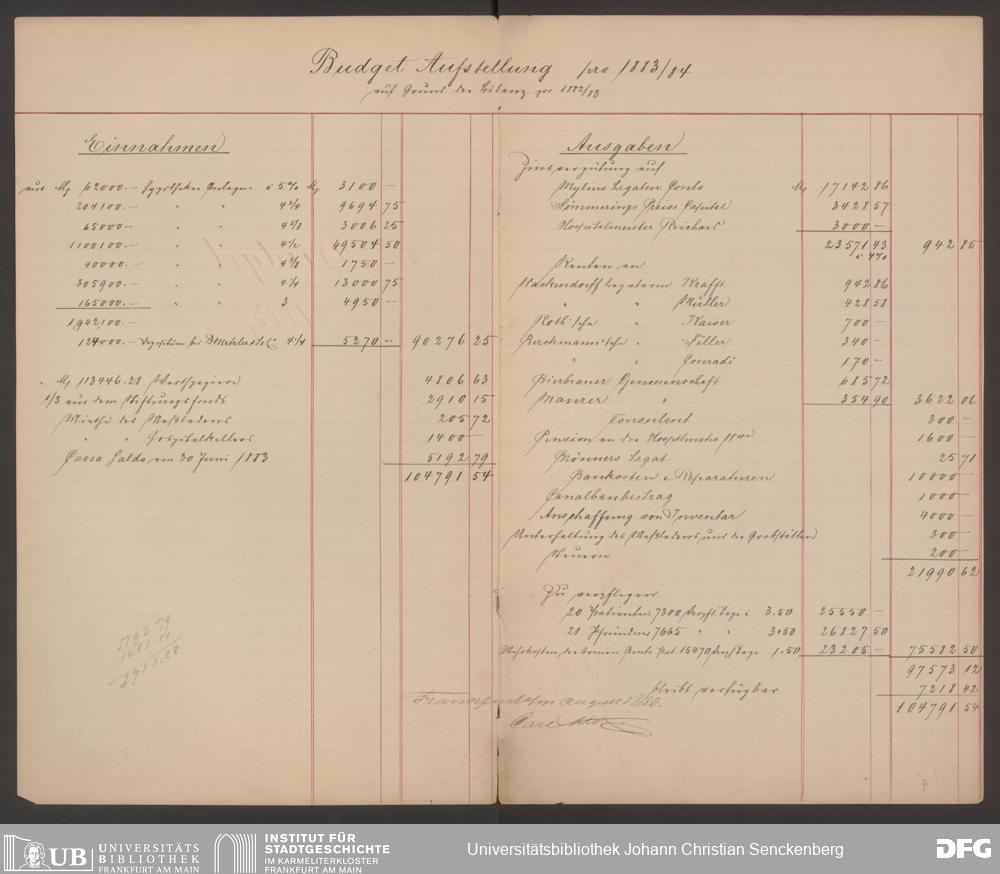 Budget Aufstellung pro 1883/84
auf Grund der Bilanz pro 1882/83
Einnahmen
aus M 62000.— Hypotheken Anlagen à 5% M 3100 —
204100.— " " 4¾ 9694 75
65000.— " " 4⅝ 3006 25
1100100.— " " 4½ 49504 50
40000.— " " 4⅜ 1750 —
305900.— " " 4¼ 13000 75
165000.— " " 3 4950 —
1,942,100.—
124000.— Depositum bei B Metzler 4¼ 5270 — 90276 25
" M 113446.28 Werthpapiere 4806 63
1/3 aus dem Stiftungsfonds 2910 15
Miethe des 205 72
" " Hospitalkellers 1400 —
Cassa Saldo am 30 Juni 1883 5192 79
104791 54
5192 79
Ausgaben
Zinsvergütung auf
Mylius Legaten Conto M 17142 86
Sömmerings Preis Capital 3428 57
Hospitalmeister Reichard 3000 —
23571 43 942 85
à 4%
Renten an
Krafft 942 86
" " Müller 428 58
Roth'sche " Kaiser 700 —
Berckmann'sche " Feller 340 —
" " Conradi 170 —
Bierbrauer Genossenschaft 685 72
Maurer " 354 90 3622 06
Consulent 300 —
Pension an die 1600 —
Brönners Legat 25 71
Baukosten & Reparaturen 10000 —
Canalbaubeitrag 1000 —
Anschaffung von Inventar 4000 —
Unterhaltung des und der Grabstätten 300 —
Steuern 200 —
21990 62
Zu verpflegen
20 Patienten 7300 Verpfl. Tage à 3.50 25550 —
21 Pfründner 7665 " " 3.50 26827 50
Mehrkosten der 15470 Verpfl. Tage 1.50 23205 — 75582 50
97573 12
bleibt verfügbar 7218 42
104791 54
Frankfurt a/m August 1883.
Carl
7
UB UNIVERSITÄTS
BIBLIOTHEK
FRANKFURT AM MAIN
INSTITUT FÜR
STADTGESCHICHTE
IM KARMELITERKLOSTER
FRANKFURT AM MAIN
Universitätsbibliothek Johann Christian Senckenberg
DFG